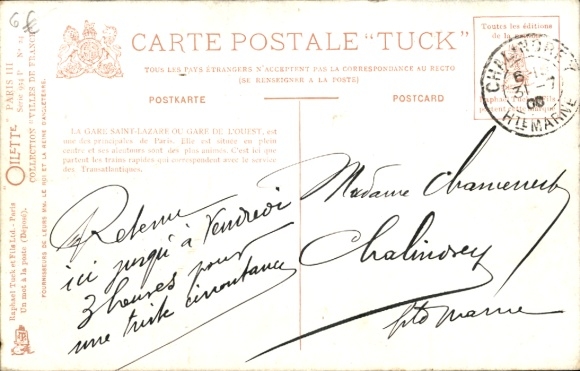 6€
CARTE POSTALE "TUCK"
TOUS LES PAYS ÉTRANGERS N'ACCEPTENT PAS LA CORRESPONDANCE AU RECTO
(SE RENSEIGNER A LA POSTE)
POSTKARTE
POSTCARD
Toutes les éditions
de la
Raphael Tuck et Fils
CHALINDREY
31 -7
06
HTE MARNE
LA GARE SAINT-LAZARE OU GARE DE L'OUEST, est
une des principales de Paris. Elle est située en plein
centre et ses alentours sont des plus animés. C'est ici que
partent les trains rapides qui correspondent avec le service
des Transatlantiques.
Retenu
ici jusqu'à Vendredi
3 heures pour
une triste circonstance
Madame
Chalindrey
Hte Marne
OILETTE
PARIS III
Série 934 P
COLLECTION VILLES DE FRANCE
Raphael Tuck et Fils Ltd - Paris
Un mot à la poste (Déposé).
FOURNISSEURS DE LEURS MM. LE ROI ET LA REINE D'ANGLETERRE.